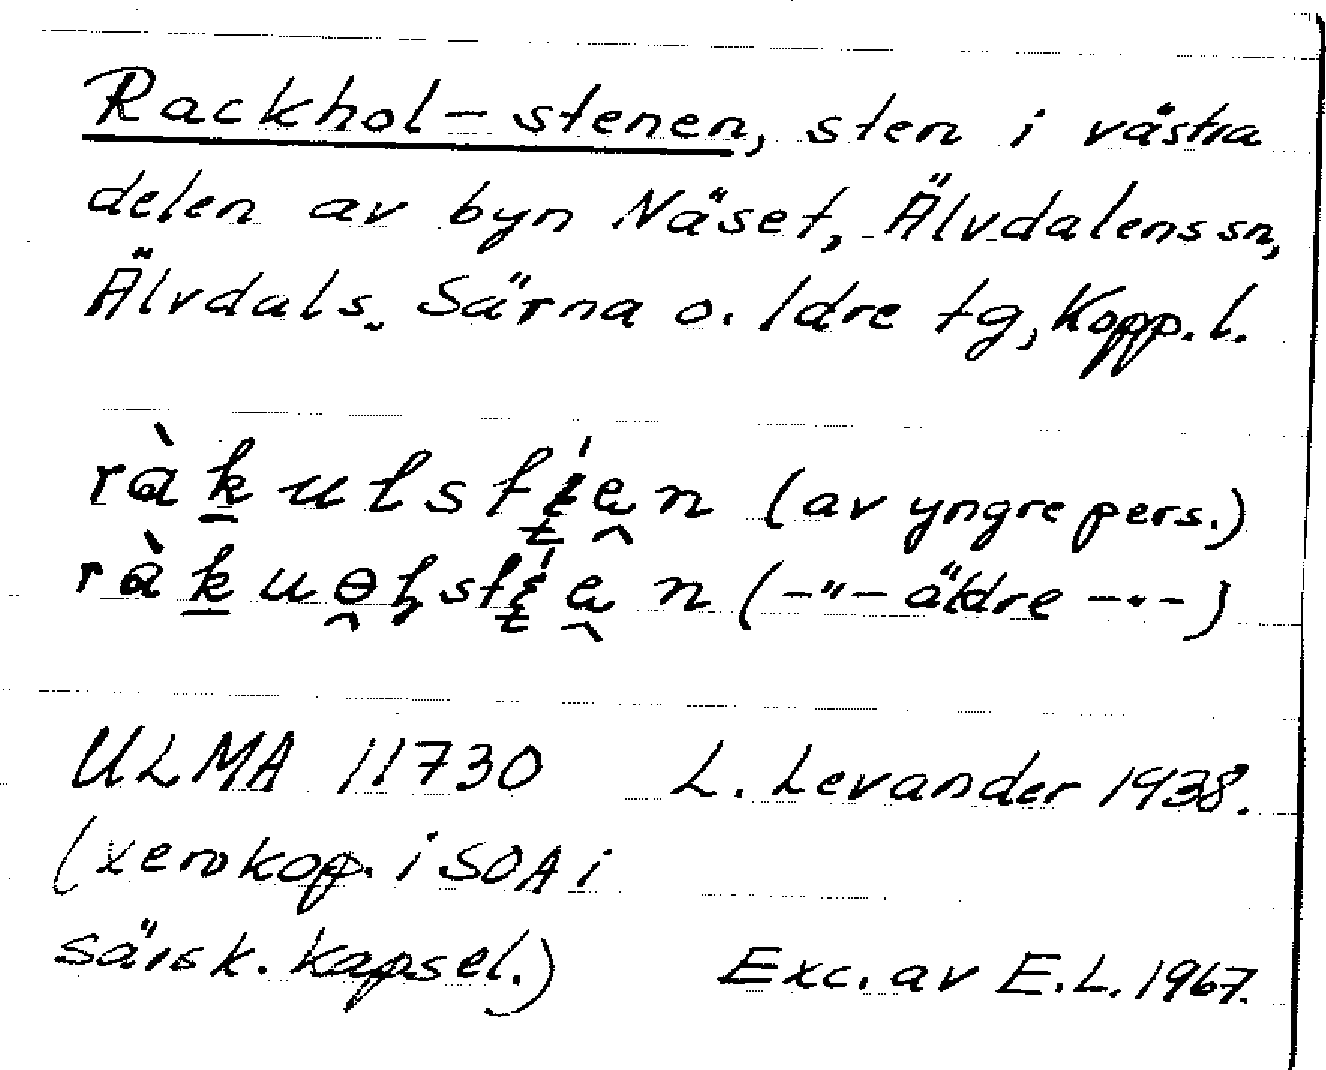 Rackhol-stenen, sten i västra
delen av byn Näset, Älvdalens sn,
Älvdals, Särna o. Idre tg, Kopp. l.
(av yngre pers.)
(-"- äldre -"-)
ULMA 11730 L. Levander 1938.
(xerokop. i SOA i
särsk. kapsel.) Exc. av E.L. 1967.